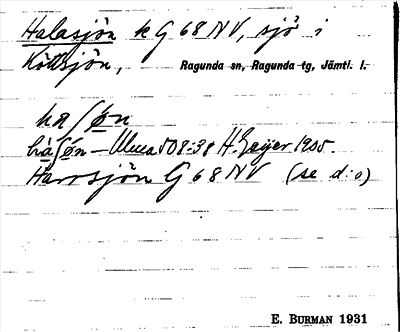 Halasjön k G 68 NV, sjö i
Köttsjön,
Ragunda sn, Ragunda tg, Jämtl. l.
ha ʃøn
hàʃøn – Ulma 508:38 H. Geijer 1905.
Harrsjön G 68 NV (se d:o)
E. BURMAN 1931